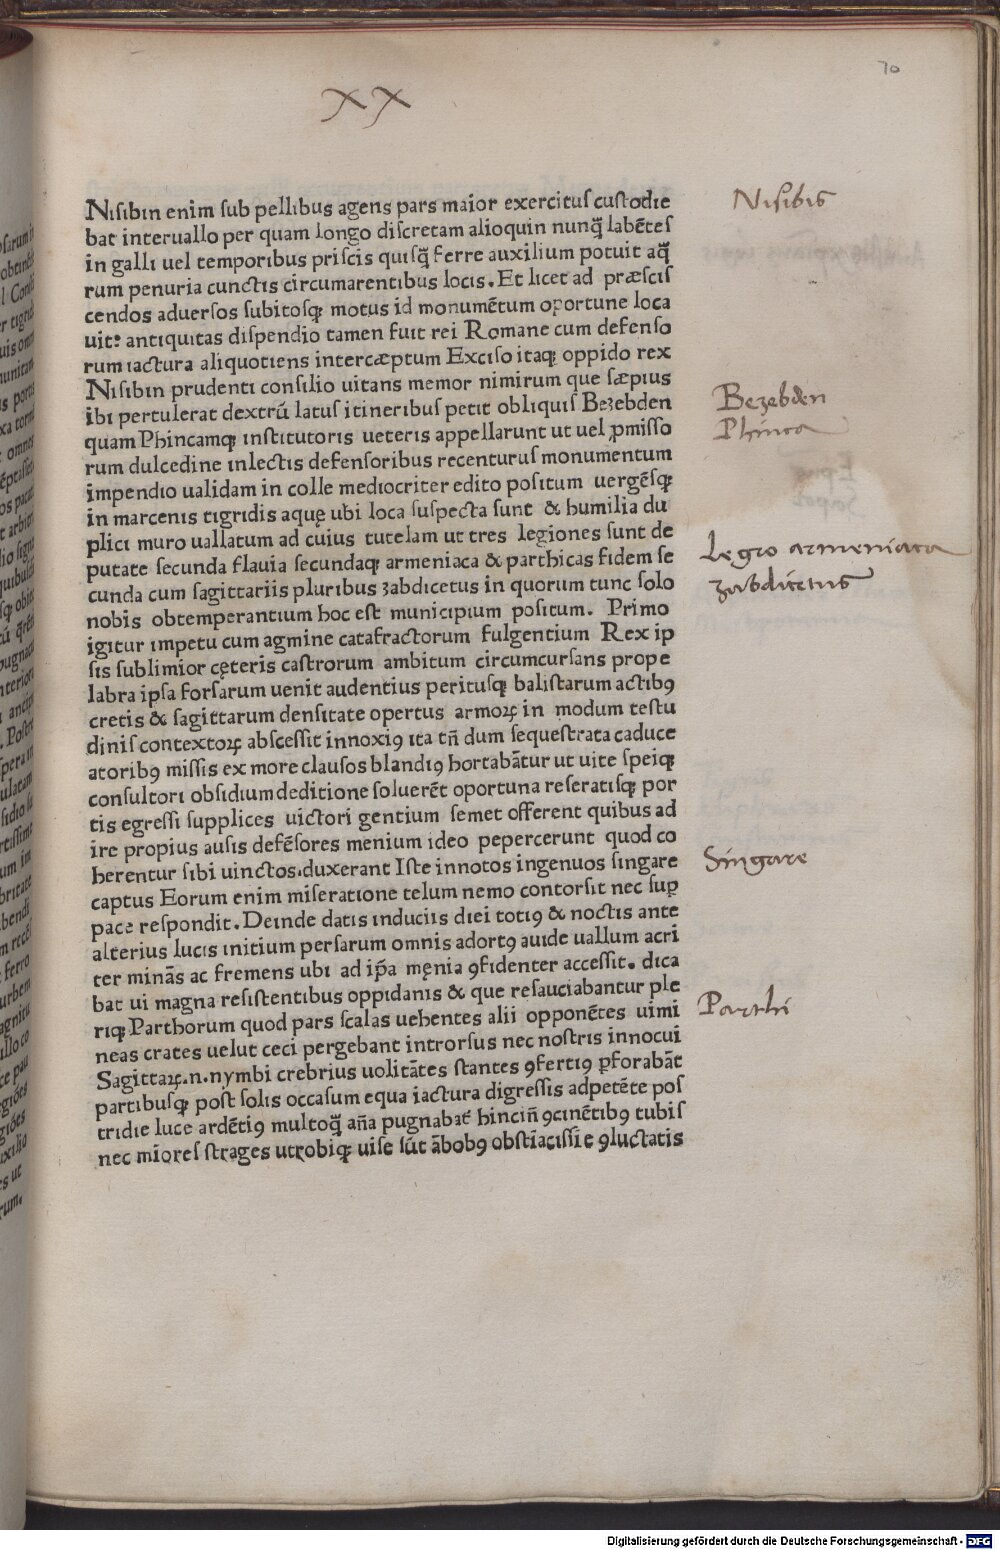 70
XX
Nisibin enim sub pellibus agens pars maior exercitus custodie
bat interuallo per quam longo discretam alioquin nunq̃ labẽtes
in galli uel temporibus priscis quisq̃ ferre auxilium potuit aq̃
rum penuria cunctis circumarentibus locis. Et licet ad præscis
cendos aduersos subitosq; motus id monumẽtum oportune loca
uit: antiquitas dispendio tamen fuit rei Romane cum defenso
rum iactura aliquotiens intercæptum Exciso itaq; oppido rex
Nisibin prudenti consilio uitans memor nimirum que sæpius
ibi pertulerat dextrũ latus itineribus petit obliquis Bezebden
quam Phincamq; institutoris ueteris appellarunt ut uel ꝓmisso
rum dulcedine inlectis defensoribus recenturus monumentum
impendio ualidam in colle mediocriter edito positum uergẽsq;
in marcenis tigridis aquę ubi loca suspecta sunt & humilia du
plici muro uallatum ad cuius tutelam ut tres legiones sunt de
putate secunda flauia secundaq; armeniaca & parthicas fidem se
cunda cum sagittariis pluribus zabdicetus in quorum tunc solo
nobis obtemperantium hoc est municipium positum. Primo
igitur impetu cum agmine catafractorum fulgentium Rex ip
sis sublimior cęteris castrorum ambitum circumcursans prope
labra ipsa forsarum uenit audentius peritusq; balistarum actibꝰ
cretis & sagittarum densitate opertus armoꝝ in modum testu
dinis contextoꝝ abscessit innoxiꝰ ita tñ dum sequestrata caduce
atoribꝰ missis ex more clausos blandiꝰ hortabãtur ut uite speiq;
consultori obsidium deditione soluerẽt oportuna reseratisq; por
tis egressi supplices uictori gentium semet offerent quibus ad
ire propius ausis defẽsores menium ideo pepercerunt quod co
herentur sibi uinctos.duxerant Iste innotos ingenuos singare
captus Eorum enim miseratione telum nemo contorsit nec suꝑ
pace respondit. Deinde datis induciis diei totiꝰ & noctis ante
alterius lucis initium persarum omnis adortꝰ auide uallum acri
ter minãs ac fremens ubi ad ip̃a męnia ꝯfidenter accessit. dica
bat ui magna resistentibus oppidanis & que resauciabantur ple
riq; Parthorum quod pars scalas uehentes alii opponẽtes uimi
neas crates uelut ceci pergebant introrsus nec nostris innocui
Sagittaꝝ.n.nymbi crebrius uolitãtes stantes ꝯfertiꝰ ꝑforabãt
partibusq; post solis occasum equa iactura digressis adpetẽte pos
tridie luce ardẽtiꝰ multoq̃ añа pugnabat̃ hinciñ ꝯcinẽtibꝰ tubis
nec mĩores strages utrobiq; uise sũt ãbobꝰ obstĩacissĩe ꝯluctatis
Nisibis
Bezebden
Phinca
Legio armeniaca
zabdicetus
Singare
Parthi
Digitalisierung gefördert durch die Deutsche Forschungsgemeinschaft - DFG